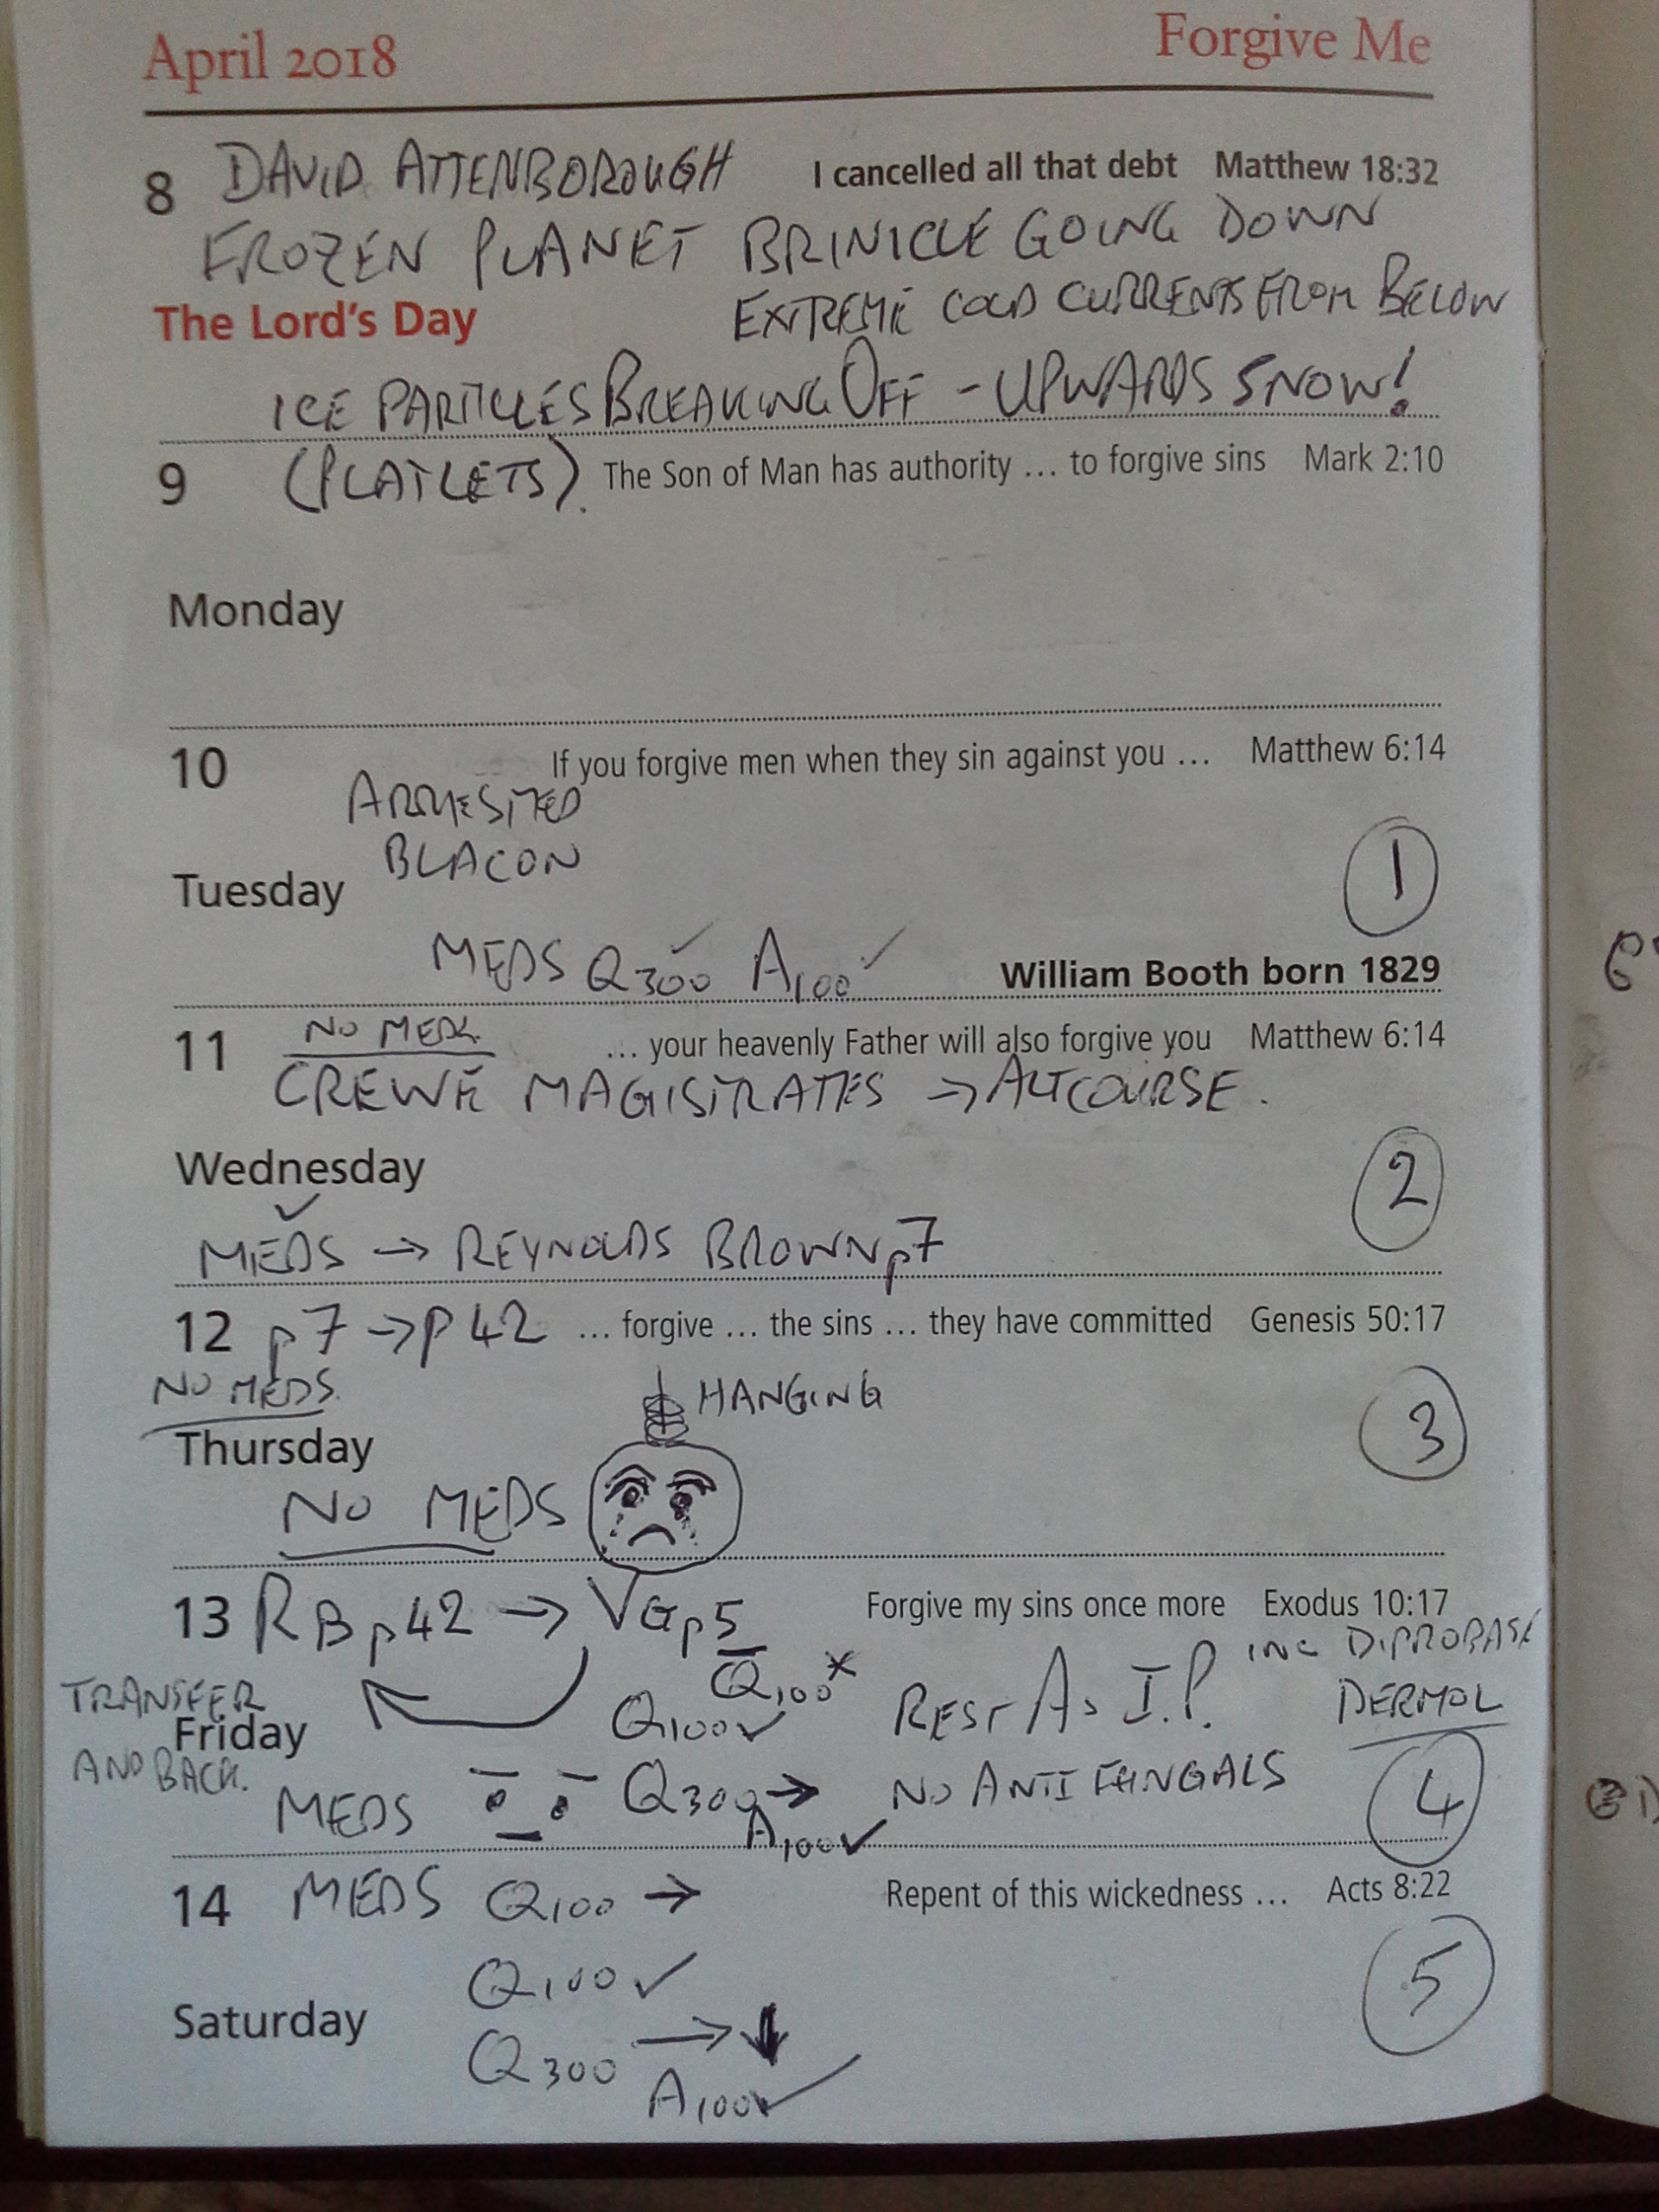 April 2018 Forgive Me
8 DAVID ATTENBOROUGH I cancelled all that debt Matthew 18:32
FROZEN PLANET BRINICLE GOING DOWN
The Lord's Day EXTREME COLD CURRENTS FROM BELOW
ICE PARTICLES BREAKING OFF - UPWARDS SNOW!
9 (PLATLETS). The Son of Man has authority ... to forgive sins Mark 2:10
Monday
10 If you forgive men when they sin against you ... Matthew 6:14
ARRESTED
BLACON
Tuesday 1
MEDS Q300 ✓ A100 ✓ William Booth born 1829
11 NO MEDS ... your heavenly Father will also forgive you Matthew 6:14
CREWE MAGISTRATES → ALTCOURSE.
Wednesday 2
MEDS ✓ → REYNOLDS BROWN p7
12 p7 → p42 ... forgive ... the sins ... they have committed Genesis 50:17
NO MEDS. HANGING
Thursday 3
NO MEDS
13 RB p42 → VG p5 Forgive my sins once more Exodus 10:17
Q100 x INC DIPROBASE
TRANSFER Q100 ✓ REST AS I.P. DERMOL
Friday
AND BACK.
MEDS Q300 → NO ANTI FUNGALS 4
A100 ✓
14 MEDS Q100 → Repent of this wickedness ... Acts 8:22
Q100 ✓ 5
Saturday
Q300 → ↓
A100 ✓